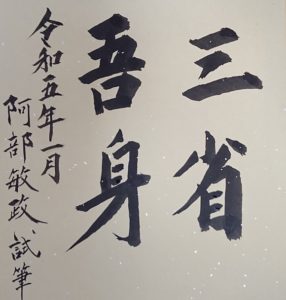 三省
吾身
令和五年一月
阿部敏政 試筆